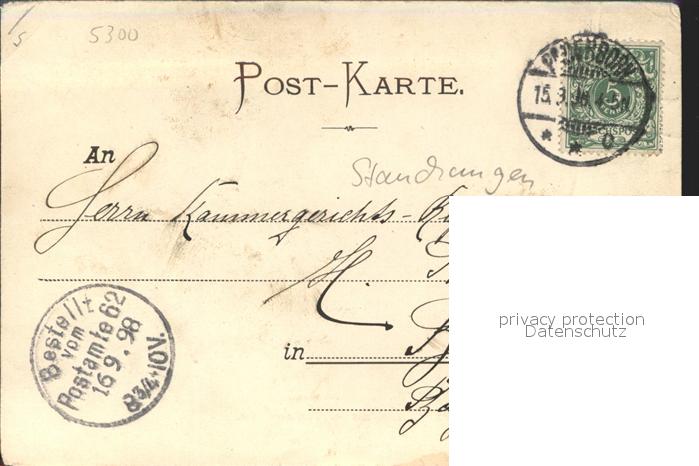 5
5300
POST-KARTE.
PADERBORN
15.9.98.
* * c
5
REICHSPOST
An
Standrungen
Herrn Kammergerichts-
H.
in
Bestellt
vom
Postamte 62
16 9. 98
8 3/4-10V.
privacy protection
Datenschutz